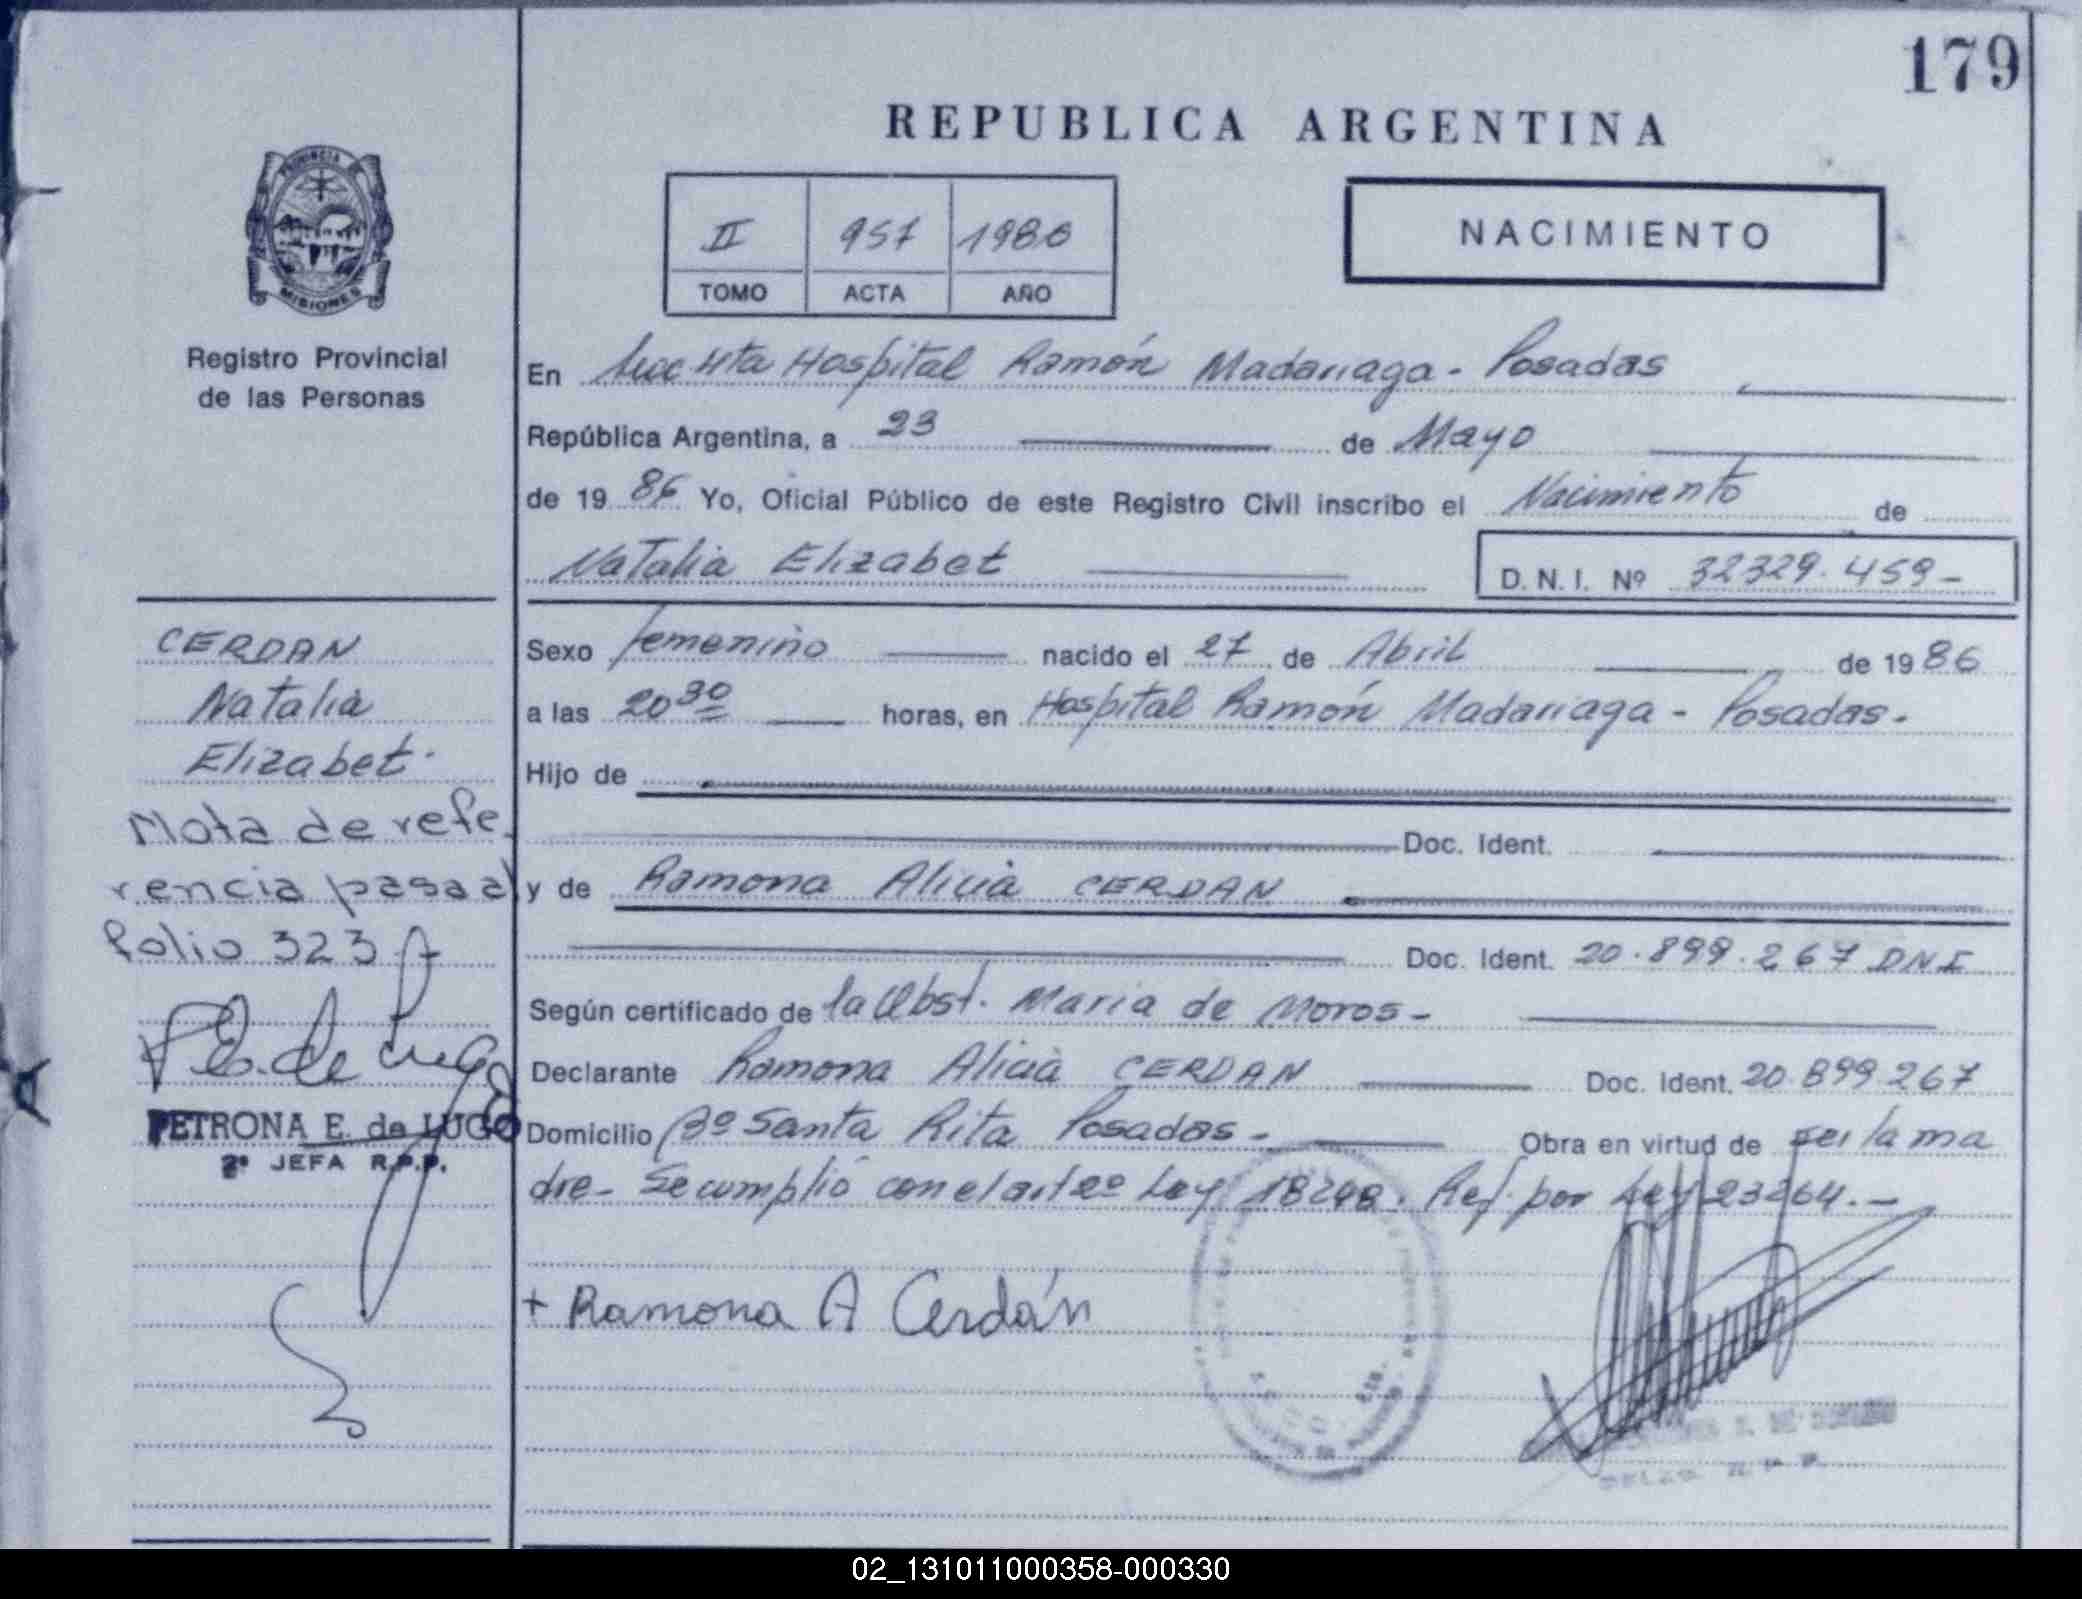 179
REPUBLICA ARGENTINA
PROVINCIA DE
MISIONES
II 957 1986
TOMO ACTA AÑO
NACIMIENTO
Registro Provincial
de las Personas
En Secc 4ta Hospital Ramón Madariaga - Posadas
República Argentina, a 23 de Mayo
de 1986 Yo, Oficial Público de este Registro Civil inscribo el Nacimiento de
Natalia Elizabet D.N.I. Nº 32329.459-
CERDAN
Natalia
Elizabet.
Nota de refe
rencia pasa al
folio 323
PETRONA E. de LUGO
2ª JEFA R.P.P.
Sexo femenino nacido el 27 de Abril de 1986
a las 20 30 horas, en Hospital Ramón Madariaga - Posadas.
Hijo de
Doc. Ident.
y de Ramona Alicia CERDAN
Doc. Ident. 20.899.267 DNI
Según certificado de la Obst. Maria de Moros-
Declarante Ramona Alicia CERDAN Doc. Ident. 20.899.267
Domicilio Bº Santa Rita Posadas- Obra en virtud de ser la ma
dre- Se cumplió con el art 2º Ley 18248. Ref. por Ley 23264.-
+ Ramona A Cerdán
02_131011000358-000330